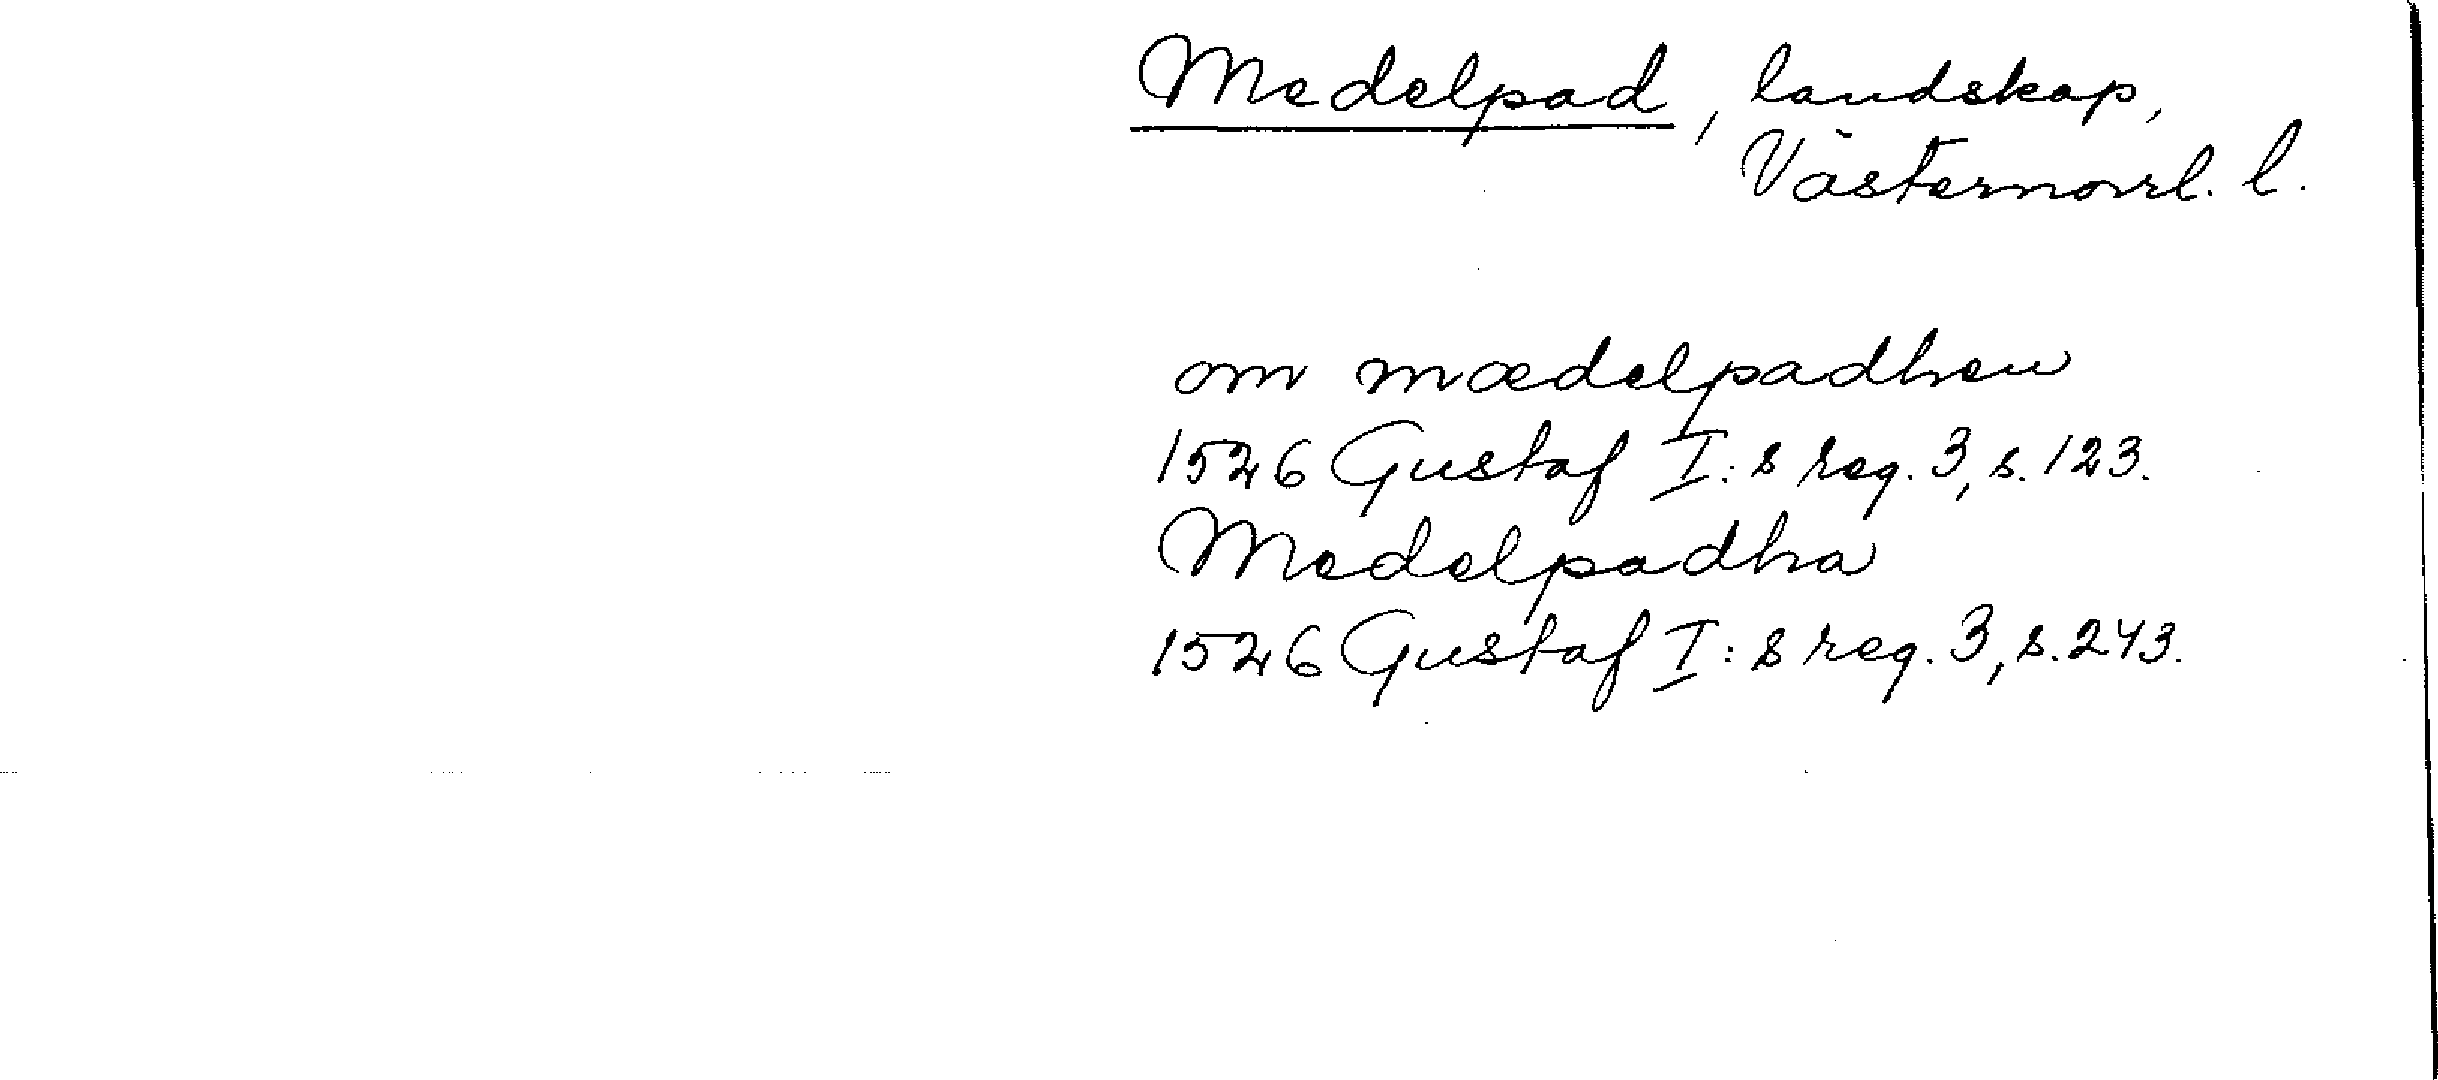 Medelpad, landskap,
Västernorrl. l.
om mædelpadhen
1526 Gustaf I:s reg. 3, s. 123.
Medelpadha
1526 Gustaf I:s reg. 3, s. 243.